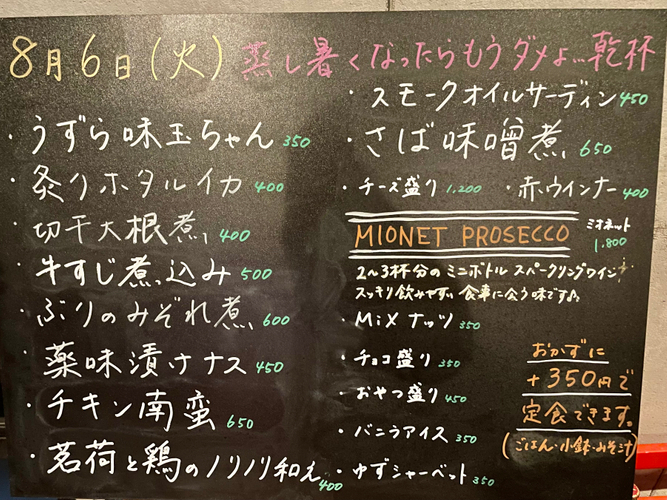 8月6日(火) 蒸し暑くなったらもうダメょ…乾杯
・うずら味玉ちゃん 350
・炙りホタルイカ 400
・切干大根煮 400
・牛すじ煮込み 500
・ぶりのみぞれ煮 600
・薬味漬けナス 450
・チキン南蛮 650
・茗荷と鶏のノリノリ和え 400
・スモークオイルサーディン 450
・さば味噌煮 650
・チーズ盛り 1,200 ・赤ウインナー 400
MIONET PROSECCO ミオネット 1,800
2~3杯分のミニボトル スパークリングワイン
スッキリ飲みやすい 食事に会う味です♪
・MiXナッツ 350
・チョコ盛り 350
・おやつ盛り 450
・バニラアイス 350
・ゆずシャーベット 350
おかずに
+350円で
定食できます。
(ごはん・小鉢・みそ汁)